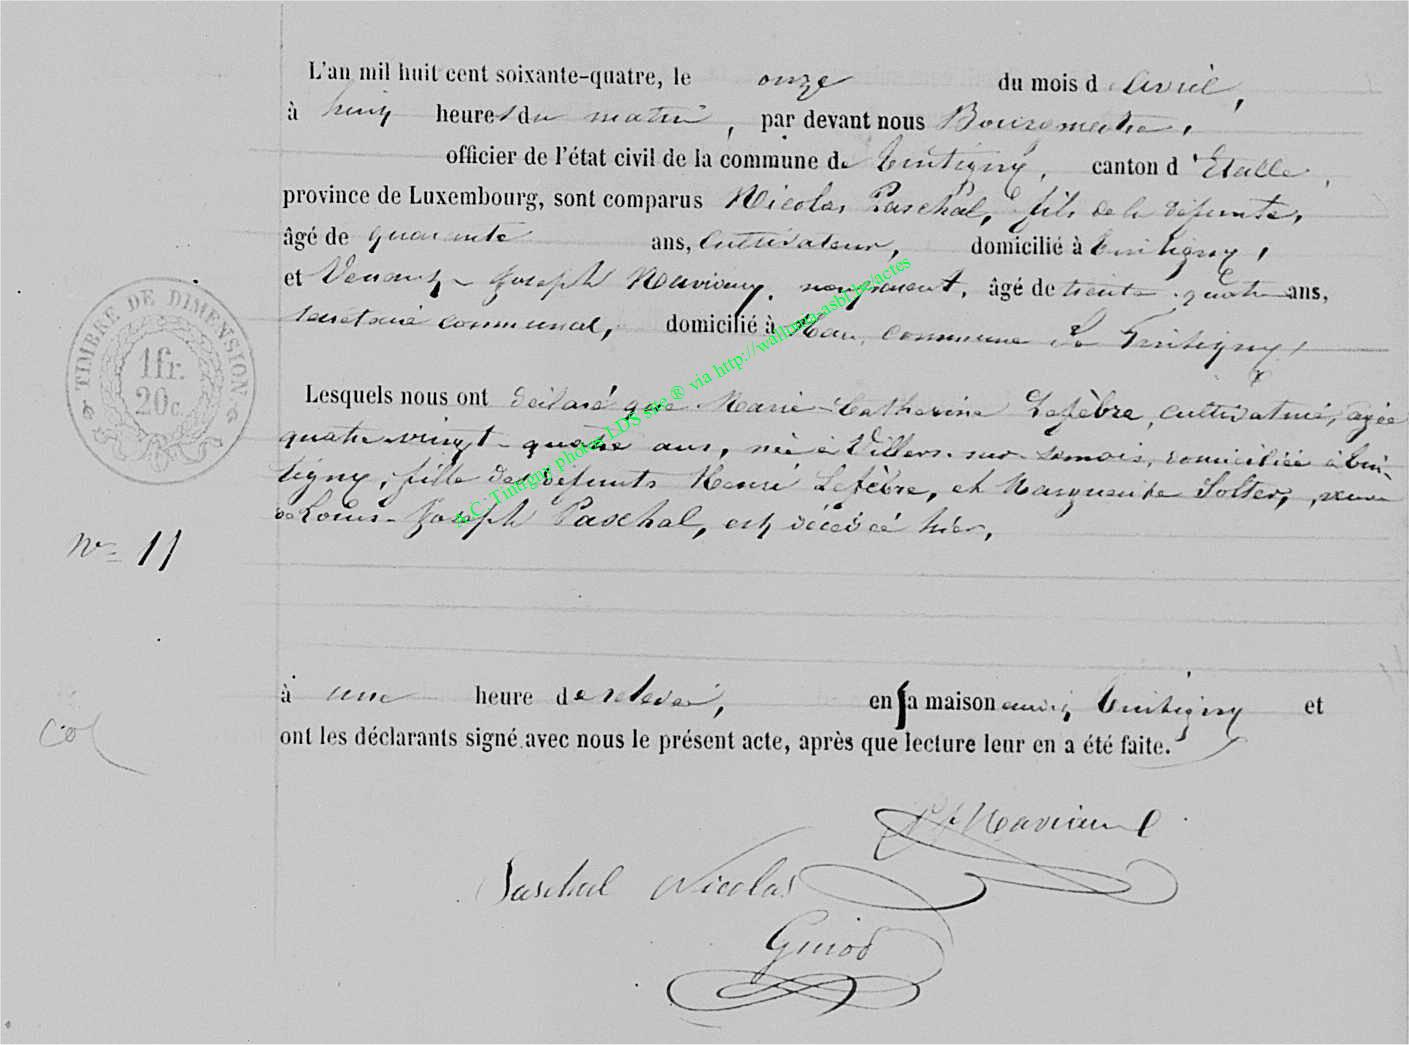 L'an mil huit cent soixante-quatre, le onze du mois d'avril,
à huit heures du matin, par devant nous Bourgmestre,
officier de l'état civil de la commune de Tintigny, canton d'Etalle,
province de Luxembourg, sont comparus Nicolas Paschal, fils de la défunte,
âgé de quarante ans, cultivateur, domicilié à Tintigny,
et Joseph âgé de trente-quatre ans,
secrétaire communal, domicilié à commune de Tintigny,
Lesquels nous ont déclaré que Marie-Catherine Lefèbre, cultivatrice, agée
quatre-vingt-quatre ans, née à Villers-sur-Semois, domiciliée à Tin-
tigny, fille des défunts Henri Lefèbre, et Marguerite veuve
de Louis-Joseph Paschal, est décédée hier,
à une heure de relevée, en sa maison audit Tintigny et
ont les déclarants signé avec nous le présent acte, après que lecture leur en a été faite.
TIMBRE DE DIMENSION
1fr.
20c.
No 11
Col
Paschal Nicolas
A.C. Tintigny photos LDS site ® via http://wallonia-asbl.be/actes